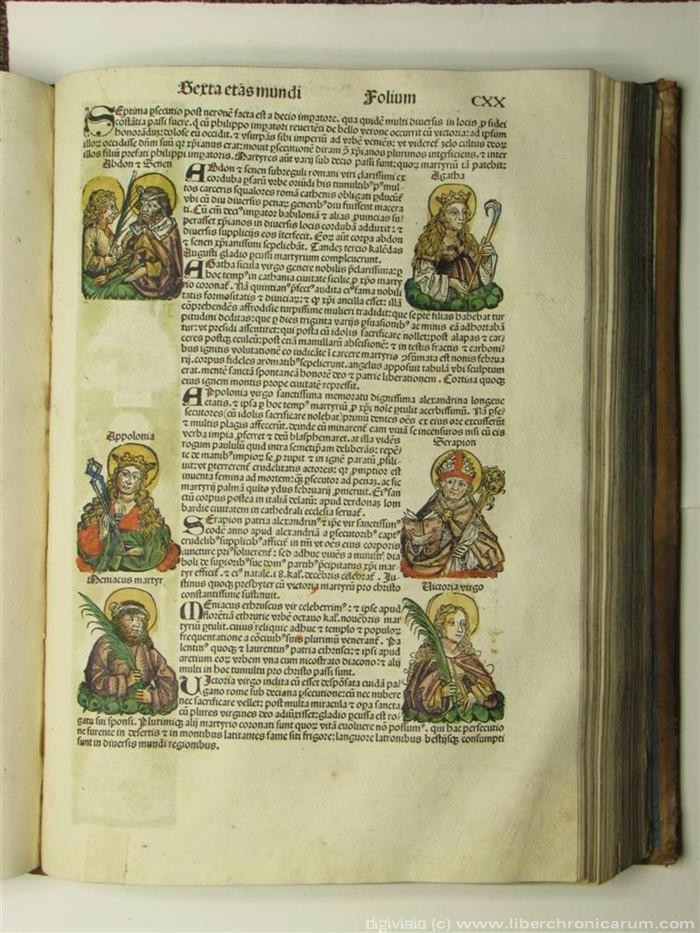 Sexta etas mundi Folium CXX
SEptima ꝑsecutio post neronē facta est a decio impatore. qua quidē multi diuersis in locis ꝓ fidei
cōstātia passi fuere. q̄ cū philippo impatori reuertēti de bello verone occurrit cū victoria: ad ipsum
honorādū: dolose eū occidit. et vsurpās sibi imperiū ad vrbē veniēs: vt videret̄ zelo cultus deoꝝ
illoꝝ occidisse dn̄m suū qꝛ xp̄ianus erat: mouit ꝑsecutionē diram
illos filiū prefati philippi impatoris. Martyres aūt varij sub decio passi sunt: quoꝝ martyriū ia patebit:
Abdon et Senen
Agatha
ABdon et senen subreguli romani viri clarissimi ex
corduba ꝑsarū vrbe oriūdi his tumultibꝰ
tos carceris squalores romā cathenis obligati ꝑducūt̄
vbi cū diu diuersis penaꝝ generibꝰ diu fuissent macera
ti. Cū em̄ deciꝰ impator babiloniā et alias ꝓuincias su
perasset xp̄ianos in diuersis locis cordubā adduxit: et
diuersis supplicijs eos iterfecit. Eoꝝ aūt corpa abdon
et senen xp̄ianissimi sepeliebāt. Tandeꝫ tercio kalēdas
Augusti gladio ꝑcussi martyrium compleuerunt.
AGatha sicula virgo genere nobilis
hoc tempꝰ in cathania ciuitate sicilie ꝓ xp̄o marty
rio coronat̄. Nā quintianꝰ ꝑfectꝰ audita eiꝰ fama nobili
tatis formositatis et diuiciaꝝ: et qꝛ xp̄i ancilla esset: illā
cōprehendēs affrodisie turpissime mulieri tradidit: que septē filias habebat tur
pitudini deditas: que ꝑ dies triginta varijs ꝑsuasionibꝰ ac minis eā adhortabā
tur: vt presidi assentiret: qui posta cū idolis sacrificare nollet: post alapas et car
ceres postqꝫ eculeū: post etiā manullarū abscisionē: et in testis fractis et carboni
bus ignitis volutationē co iudicāte i carcere martyriū ꝯsūmata est nonis februa
rij. corpus fideles aromatibꝰ sepelierunt. angelus apposuit tabulā vbi sculptum
erat. mentē sanctā spontaneā honorē deo et patrie liberationem. Cortina quoqꝫ
eius ignem montis prope ciuitatē repressit.
APpolonia virgo sanctissima memoratu dignissima alexandrina longeue
etatis. et ipsa ꝑ hoc tempꝰ martyriū ꝓ xp̄i noīe ꝑtulit acerbissimū. Nā ꝑse
secutores (cū idolis sacrificare nolebat) primū dentes oēs ex eius ore excusserūt
et multis plagis affecerūt. deinde cū minarent̄ eam viuā se incensuros nisi cū eis
verba impia ꝓferret et deū blasphemaret. at illa vidēs
rogum paululū quid intra semetipsam deliberās: repē
te de manibꝰ impioꝝ se ꝓrupit et in ignē paratū ꝓsili
uit: vt ꝑterrerent̄ crudelitatis actores: qꝛ ꝓmptior est
inuenta femina ad mortem: qꝫ ꝑsecutor ad penaꝫ. ac sic
martyrij palmā quito ydus februarij ꝓmeruit. Eiꝰ san
ctū corpus postea in italiā delatū: apud derdonaꝫ lom
bardie ciuitatem in cathedrali ecclesia seruat̄.
Appolonia
Serapion
SErapion patria alexandrinꝰ et ip̄e vir sanctissimꝰ
eodē anno apud alexandriā a ꝑsecutoribꝰ capt
crudelibꝰ supplicijs afficit̄ in tm̄ vt oēs eius corporis
iuncture priꝰ soluerent̄: sed adhuc viuēs a ministꝭ dia
boli de supioribꝰ sue domꝰ partibꝰ ꝑcipitatus xp̄i mar
tyr efficit̄. et eiꝰ natale. 18. kal. decēbris celebrat̄. Ju
stinus quoqꝫ presbyter cū victoria martyrū pro christo
constantissime sustinuit.
Meniacus martyr.
Victoria virgo
MEniacus ethruscus vir celeberrimꝰ: et ipse apud
florētiā ethrurie vrbē octauo kal. nouēbris mar
tyriū ꝑtulit. cuius reliquie adhuc et templo et populoꝝ
frequentatione a cōciuibꝰ suis plurimū venerant̄. Pa
lentinꝰ quoqꝫ et laurentinꝰ patria ethrusci: et ipsi apud
aretium eoꝝ vrbem vna cum nicostrato diacono et alij
multi in hoc tumultu pro christo passi sunt.
UIctoria virgo inclita cū esset despōsata cuidā pa
gano rome sub deciana ꝑsecutione: cū nec nubere
nec sacrificare vellet: post multa miracula et opa sancta
cū plures virgines deo adiūxisset: gladio ꝑcussa est ro
gatu sui sponsi. Plurimiqꝫ alij martyrio coronati sunt quoꝝ vitā euoluere nō possumꝰ. qui hac persecutio
ne furente in desertis et in montibus latitantes fame siti frigore: languore latronibus bestijsqꝫ consumpti
sunt in diuersis mundi regionibus.
digivisio (c) www.liberchronicarum.com